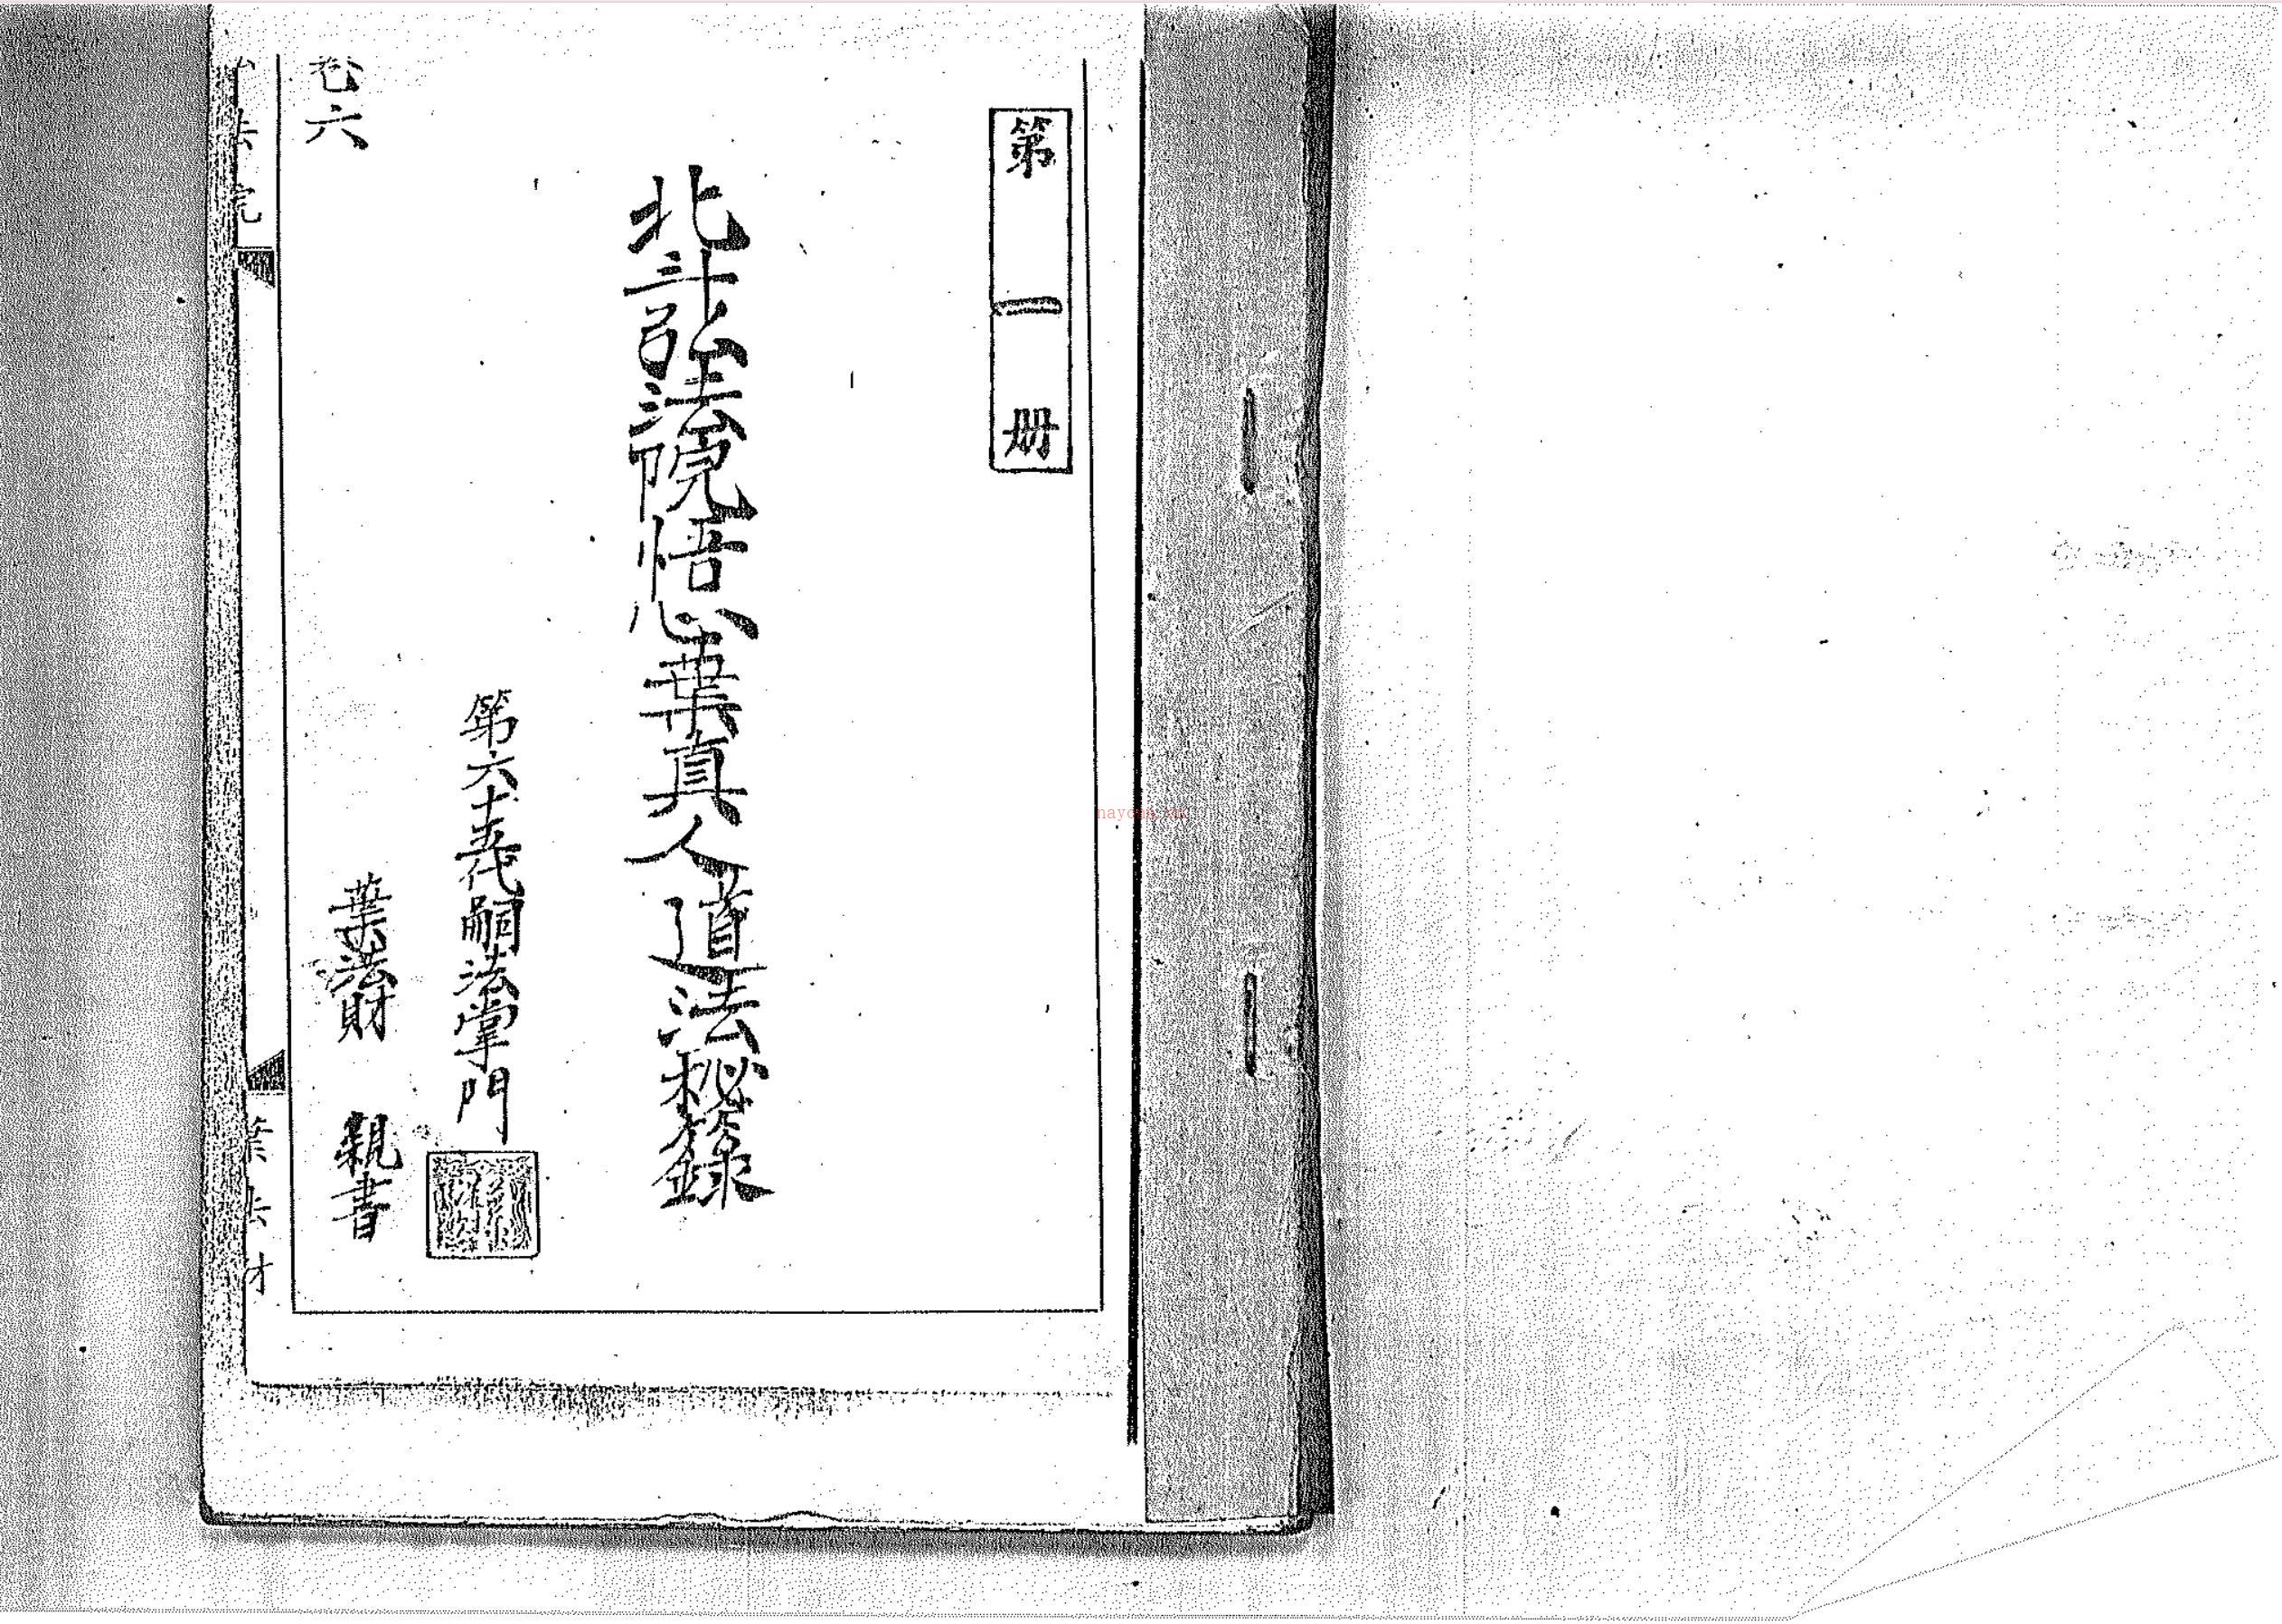 第一册
北斗弘法院悟心葉真人道法秘籙
第六十五代嗣法掌門
葉法財 親書
卷六
法院
葉法財